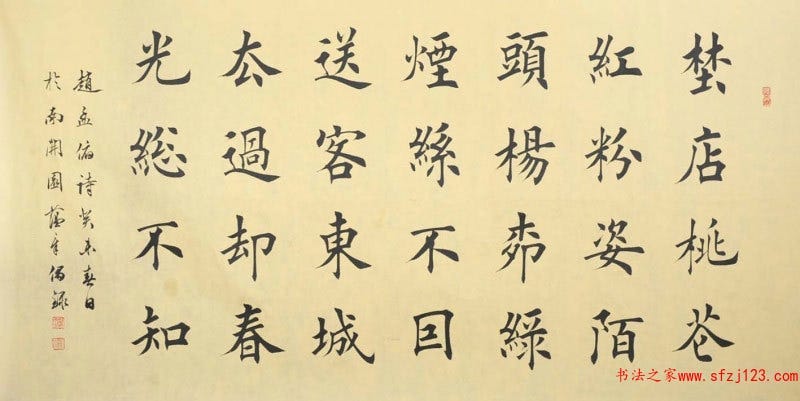 埜店桃花
紅粉姿陌
頭楊柳綠
煙絲不因
送客東城
去過却春
光総不知
趙孟俯詩癸未春日
於南開園偶錄
书法之家www.sfzj123.com